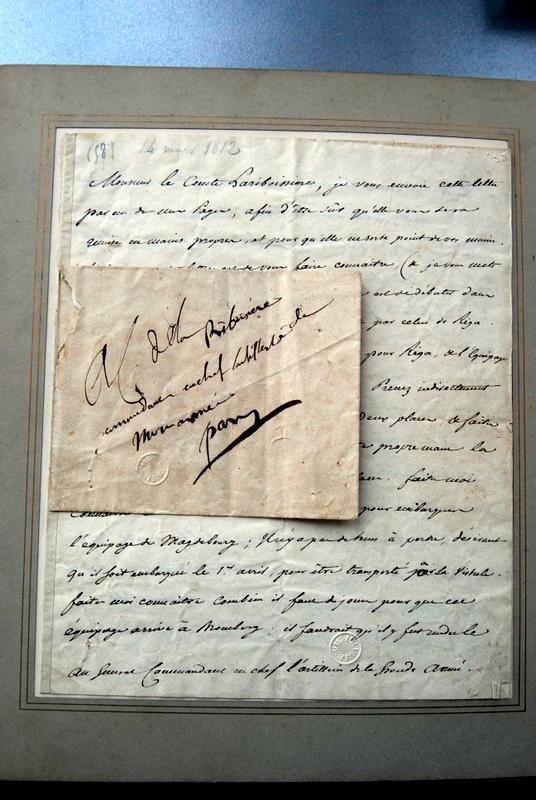 (58) 14 mars 1812
Monsieur le Comte Lariboissiere, je vous envoie cette lettre
par un de mes Pages, afin d'être sûr qu'elle vous sera
remise en mains propres, et pour qu'elle ne sorte point de vos mains.
est de vous faire connaitre (& je vous mets
est de débuter dans
par celui de Riga.
pour Riga, de l'Equipage
Prenez indirectement
deux places, & faite
propre main la
faite moi
pour embarquer
l'équipage de Magdebourg; Il n'y a pas de tems à perdre, désirant
qu'il soit embarqué le 1er avril, pour être transporté par la Vistule.
faite moi connaitre combien il faut de jours pour que cet
équipage arrive à Bromberg; il faudrait qu'il y fut rendu le
Au General Commandant en chef l'artillerie de la Grande Armée
A M. de la Riboisiere
commandant en chef l'artillerie de
Mon armée
paris